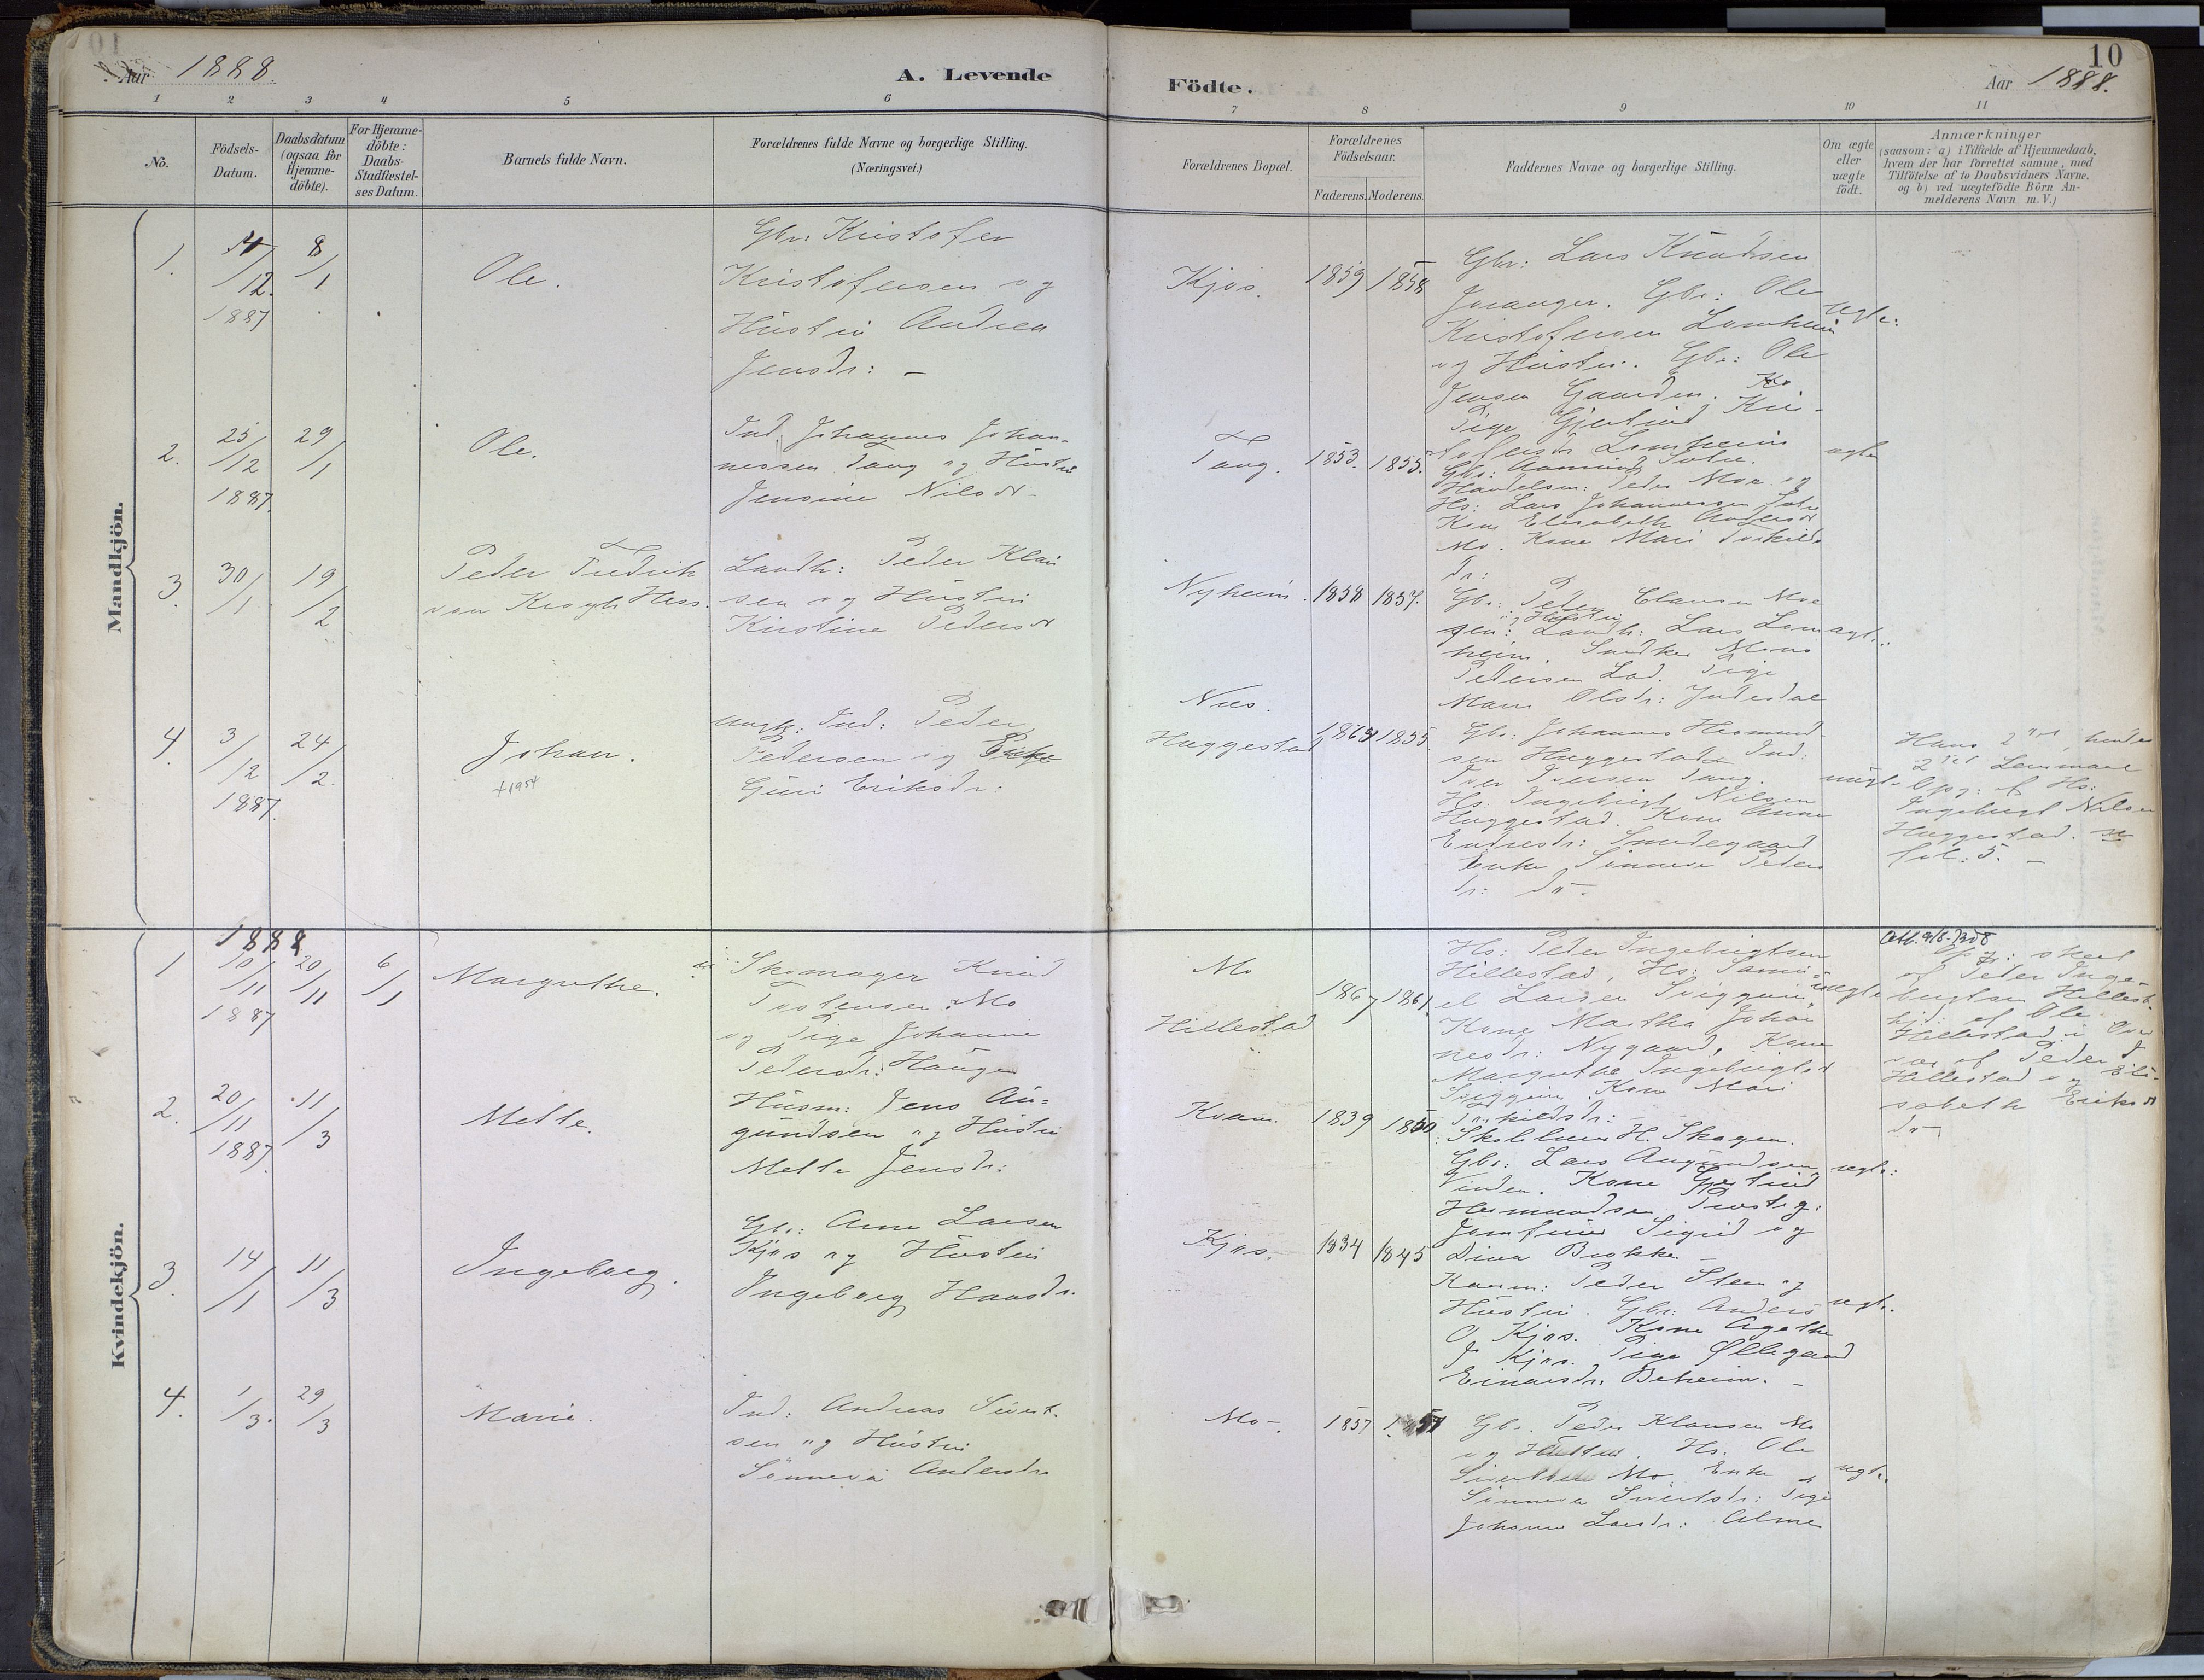 Aar 1888.
A. Levende
Födte.
Aar 1888.
10
1 2 3 4 5 6 7 8 9 10 11
No.
Födsels-
Datum.
Daabsdatum
(ogsaa for
Hjemme-
döbte).
For Hjemme-
döbte:
Daabs-
Stadfæstel-
ses Datum.
Barnets fulde Navn.
Forældrenes fulde Navne og borgerlige Stilling.
(Næringsvei.)
Forældrenes Bopæl.
Forældrenes
Födselsaar.
Faderens. Moderens.
Faddernes Navne og borgerlige Stilling.
Om ægte
eller
uægte
födt.
Anmærkninger
(saasom: a) i Tilfælde af Hjemmedaab,
hvem der har forrettet samme, med
Tilföielse af to Daabsvidners Navne,
og b) ved uægtefödte Börn An-
melderens Navn m. V.)
Mandkjön.
1.
/12.
1887
8/1
Ole.
Gbr: Kristofer
Kristofersen og
Hustru Andrea
Jensdr: -
Kjøs.
1859 1858
Gbr: Lars Knudsen
Joranger. Gbr: Ole
Kristofersen Lomheim
og Hustru. Gbr: Ole
Jensen Gaarden.
Pige Gjertrud Kri-
stofersdr Lomheim
ægte:
2.
25/12
1887.
29/1
Ole.
Ind. Johannes Johan-
nessen Tang og Hustru
Jensine Nilsdr-
Tang.
1853. 1855.
Gbr: Aamund
Handelsm: Peder Moe og
Hs: Lars Johannessen
Kone Elisabeth Andersdr
Mo. Kone Mari Torkilds
dr:
ægte
3.
30/1
19/2
Peder Fredrik
von Krogh Hess.
Landh: Peder Klau
sen og Hustru
Kirstine Pedersdr
Nyheim.
1858 1857.
Gbr: Peder Clausen Moe
og Hustru
Landh: Lars Lom
heim. Snedker Mons
Pedersen Lad. Pige
Mari Olsdr:
ægte:
4.
3/12
1887.
24/2.
Johan.
+1954
Ungk. Ind: Peder
Pedersen og
Guri Eriksdr:
Næs.
Hæggestad
1855
Gbr: Johannes Hermund-
sen Hæggestad Ind:
Iver Iversen Tang.
Hs: Ingebrigt Nilsen
Hæggestad. Kone Anne
Endresdr: Smedegaard
Enke Sønneva Peders
dr: do-.
uægte
Hans 2det, hendes
2det Leiermaal
Opg: af Hs:
Ingebrigt Nilsen
Hæggestad.
fol: 5. -
Kvindekjön.
1888
1
10/11
1887
20/11
6/1
Margrethe.
Skomager Knud
Torstensen Mo
og Pige Johanne
Pedersdr: Haugen
Mo
Hillestad
1867 1861.
Hs: Peder Ingebrigtsen
Hillestad, Hs: Samu-
el Larsen Sviggum,
Kone Martha Johan
nesdr: Nygaard, Kone
Margrethe Ingebrigtsdr
Sviggum. Kone Mari
Torkildsdr:
uægte
Att. 9/8-
Opg: skeet
af Peder Inge-
brigtsen Hillest.
hjd: af Ole
Hillestad i Over
vær af Peder I
Hillestad og Eli-
sabeth Eriksdr
do
2.
20/11
1887.
11/3
Mette.
Husm: Jens Au-
gundsen og Hustru
Mette Jensdr:
Kvam.
1839 1850
Skolelærer H. Skogen.
Gbr: Lars Augundsen
Vinden. Kone Gjertrud
Hermundsen Prestegr:
Jomfruer Sigrid og
Dina Brokke -
ægte:
3.
14/1
11/3
Ingeborg.
Gbr: Arne Larsen
Kjøs og Hustru
Ingeborg Hansdr.
Kjøs.
1834 1845
Kaarm: Peder Steen og
Hustru. Gbr: Anders
O. Kjøs. Kone Agathe
J. Kjøs. Pige Øllegaard
Einarsdr. Beheim. -
ægte.
4.
1/3.
29/3
Marie.
Ind: Andreas Sivert-
sen og Hustru
Sønneva Andersdr
Mo-.
1857
Gbr. Peder Klausen Mo
og Hustru. Hs: Ole
Sivertsen Mo. Enke
Sønneva Sivertsdr: Pige
Johanne Larsdr: Alme
ægte.